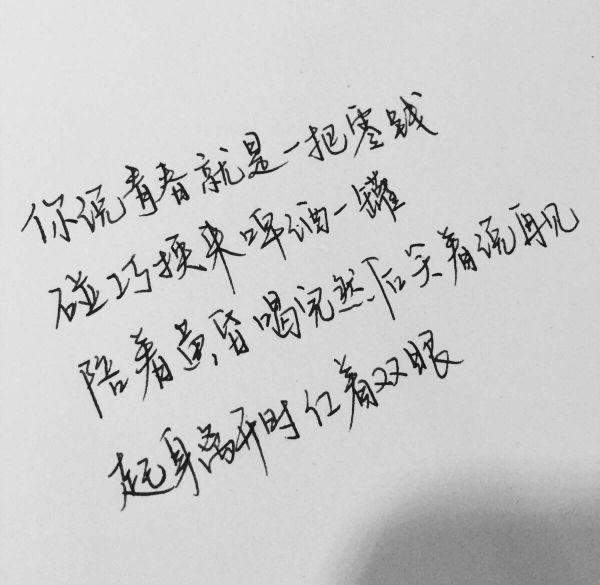 你说青春就是一把零钱
碰巧换来啤酒一罐
陪着黄昏喝完然后笑着说再见
起身离开时红着双眼